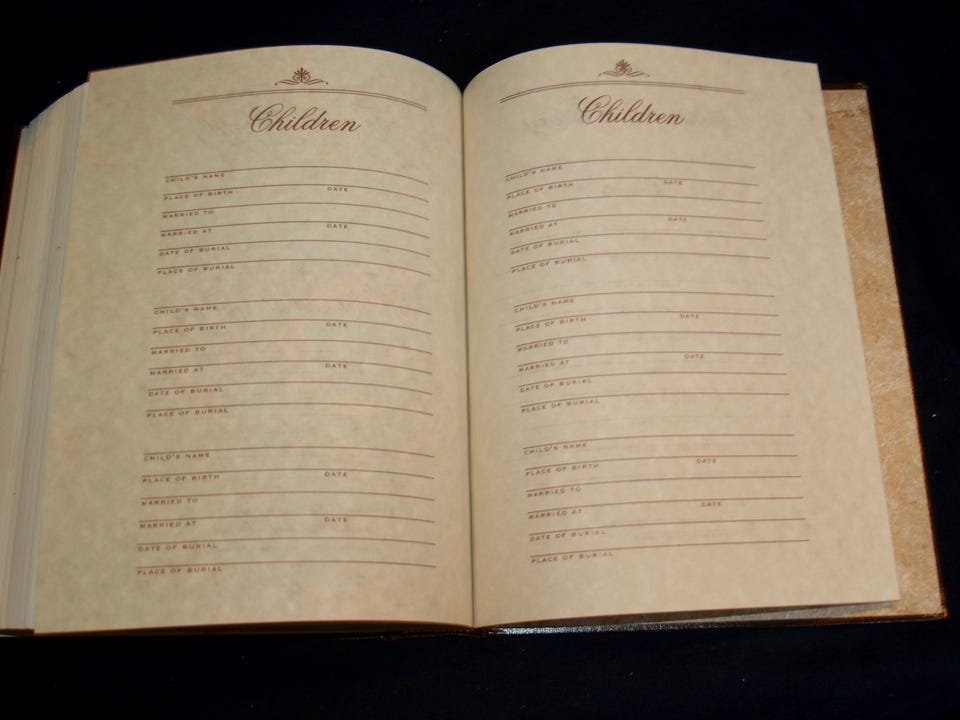 Children
CHILD'S NAME
PLACE OF BIRTH DATE
MARRIED TO
MARRIED AT DATE
DATE OF BURIAL
PLACE OF BURIAL
CHILD'S NAME
PLACE OF BIRTH DATE
MARRIED TO
MARRIED AT DATE
DATE OF BURIAL
PLACE OF BURIAL
CHILD'S NAME
PLACE OF BIRTH DATE
MARRIED TO
MARRIED AT DATE
DATE OF BURIAL
PLACE OF BURIAL
Children
CHILD'S NAME
PLACE OF BIRTH DATE
MARRIED TO
MARRIED AT DATE
DATE OF BURIAL
PLACE OF BURIAL
CHILD'S NAME
PLACE OF BIRTH DATE
MARRIED TO
MARRIED AT DATE
DATE OF BURIAL
PLACE OF BURIAL
CHILD'S NAME
PLACE OF BIRTH DATE
MARRIED TO
MARRIED AT DATE
DATE OF BURIAL
PLACE OF BURIAL